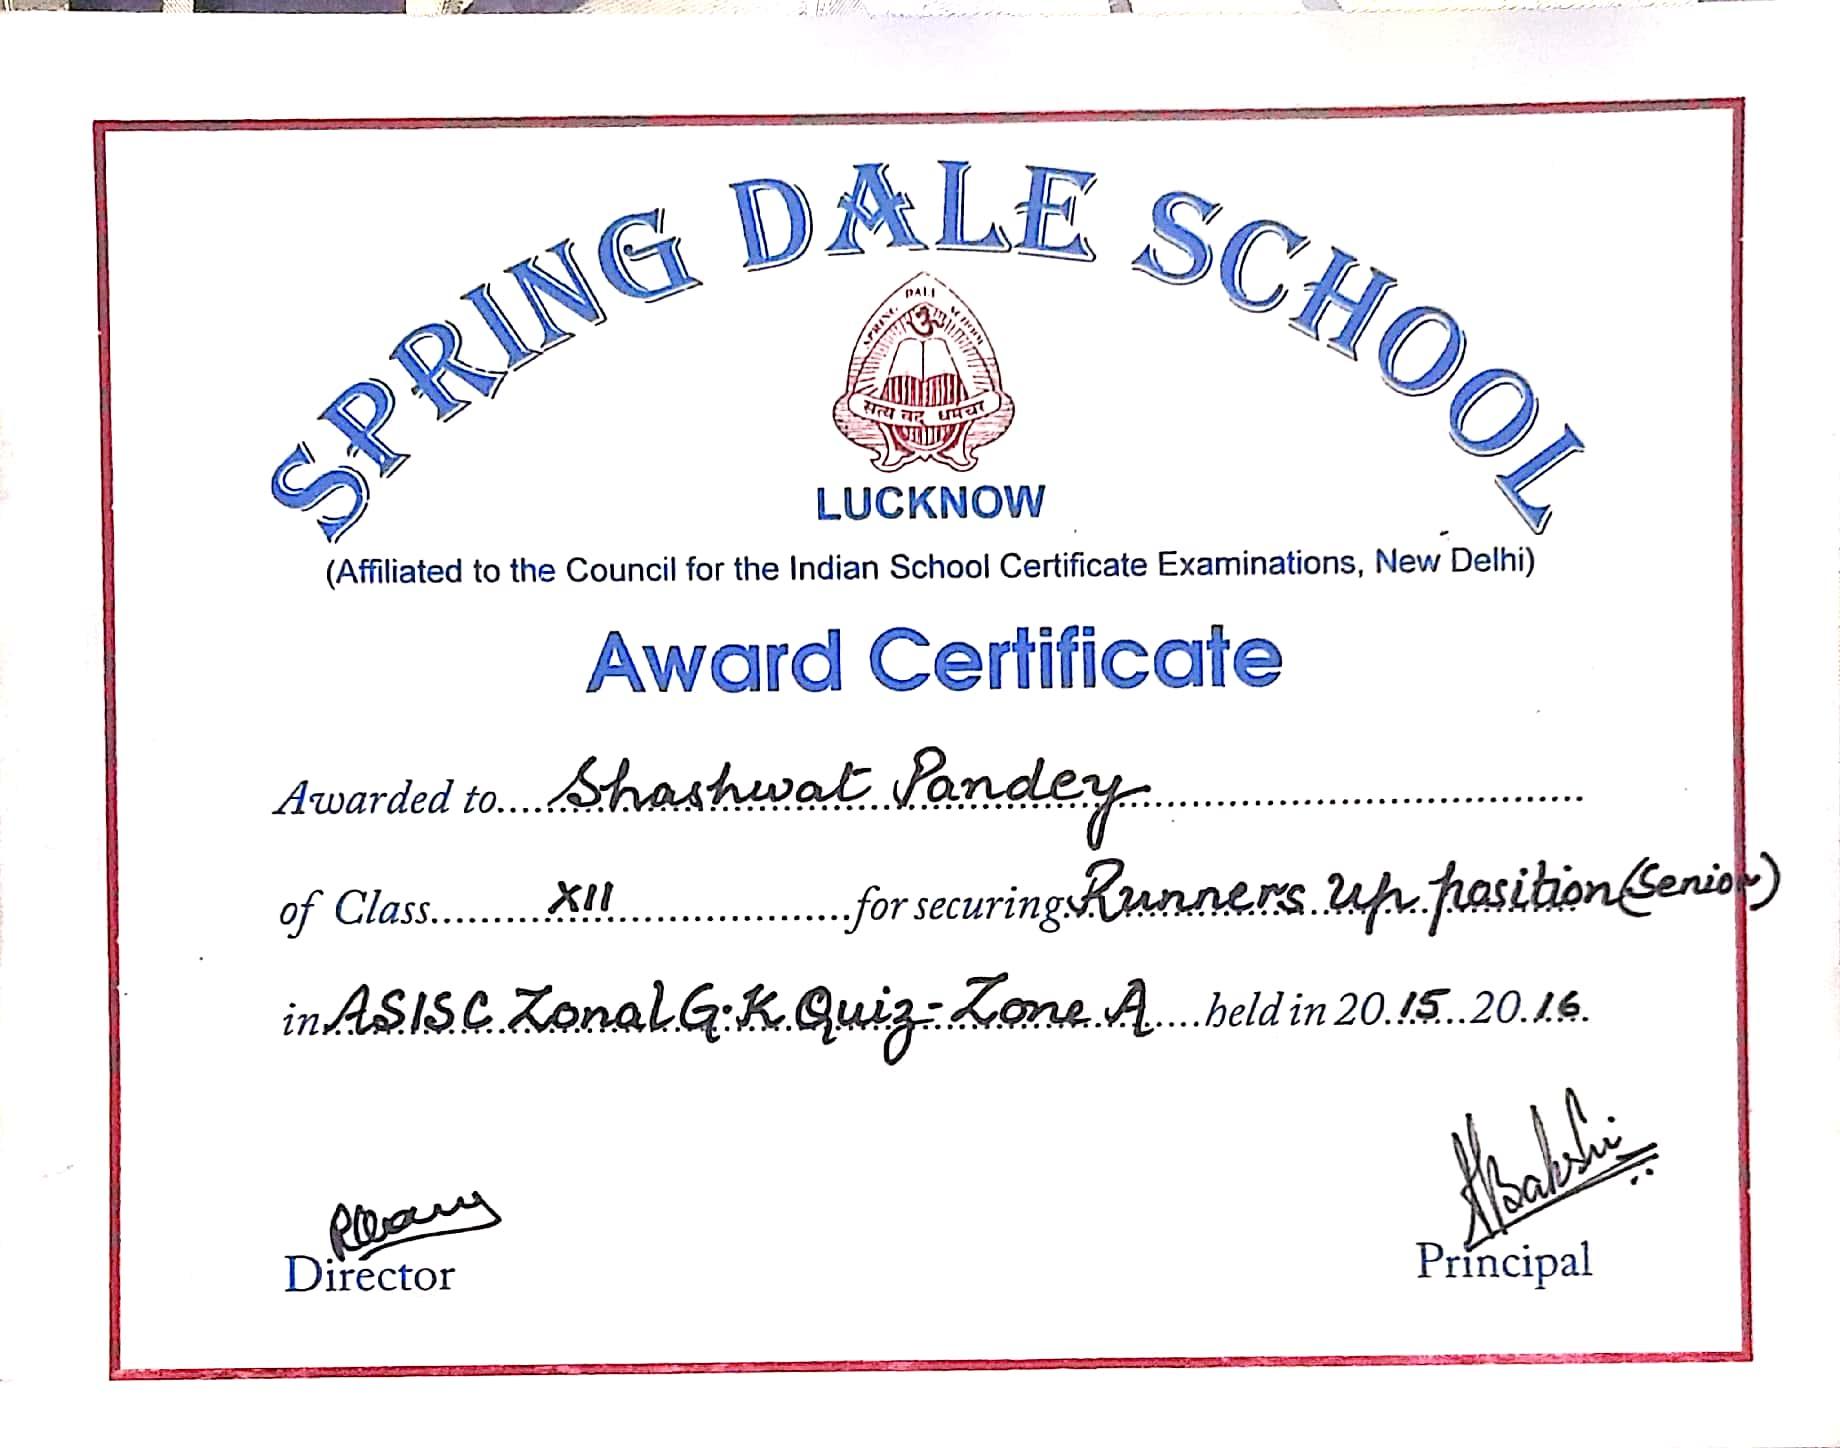 SPRING DALE SCHOOL
SPRING DALE SCHOOL
सत्य वद् धर्मं चर
LUCKNOW
(Affiliated to the Council for the Indian School Certificate Examinations, New Delhi)
Award Certificate
Awarded to....Shashwat Pandey
of Class.........XII...................for securing Runners up position (Senior)
in ASISC Zonal G.K Quiz - Zone A....held in 20.15..20.16.
Bakshi
Director
Principal